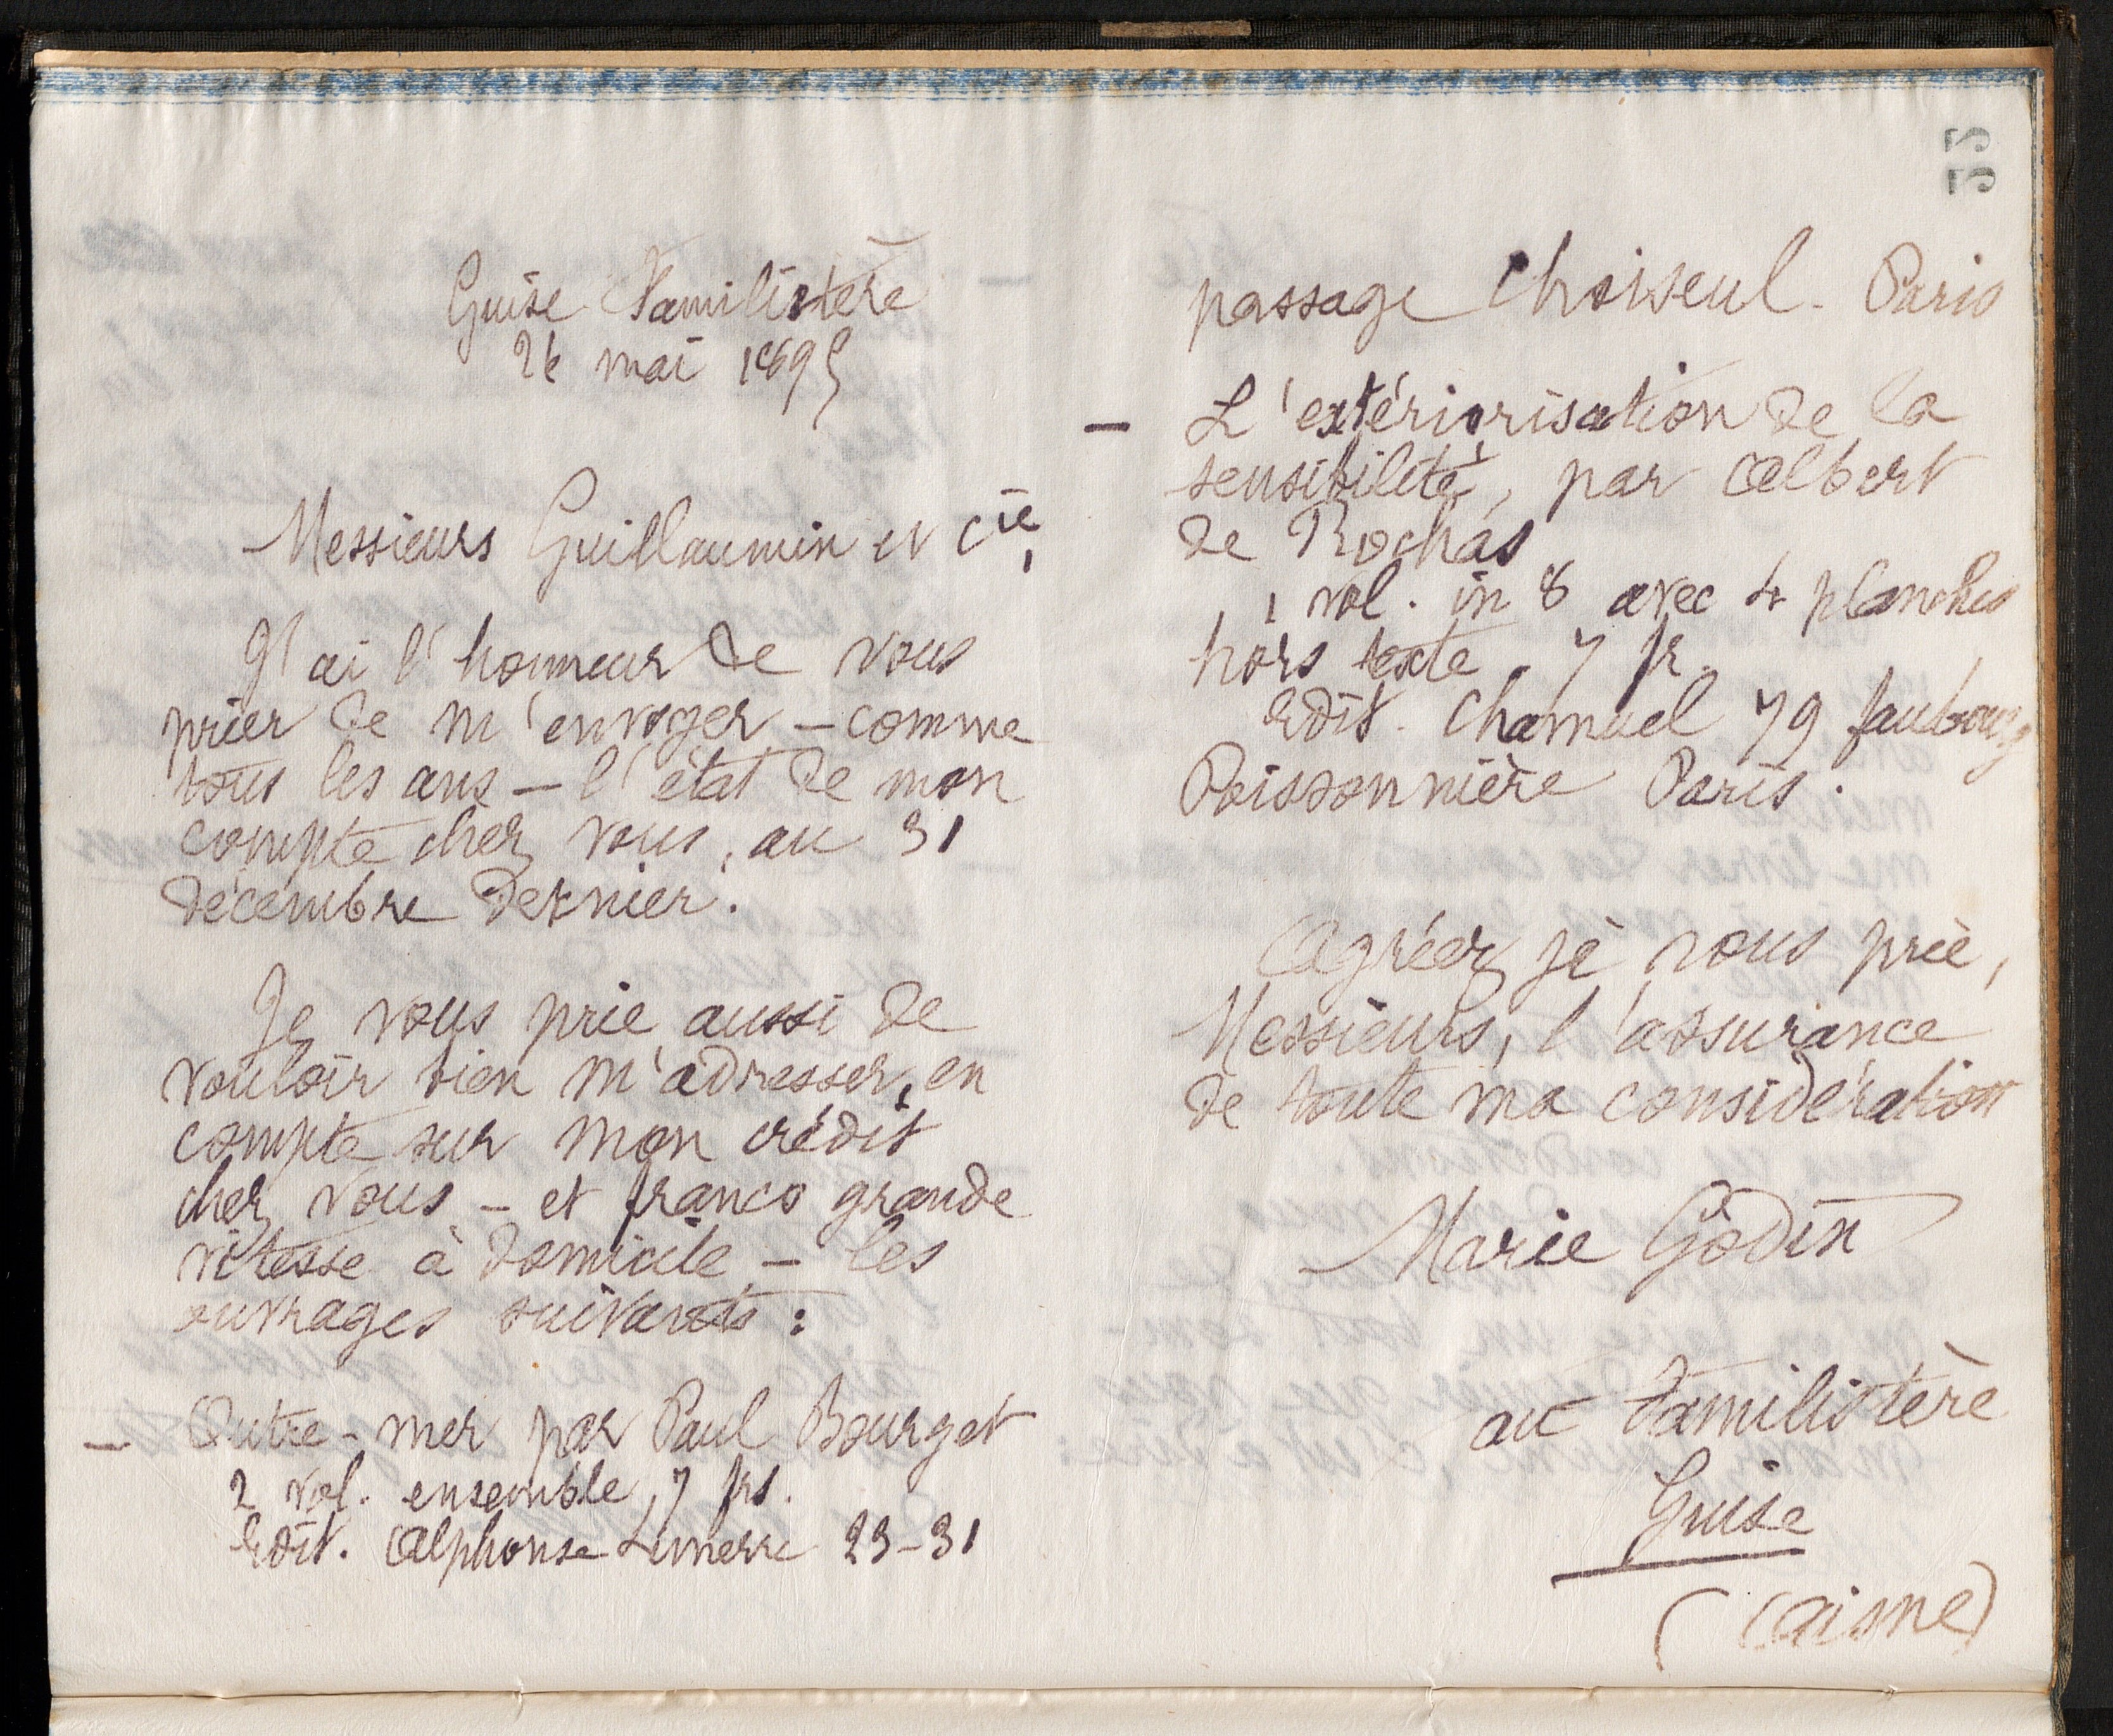 Guise Familistère
26 mai 1895
Messieurs Guillaumin et Cie,
J'ai l'honneur de vous
prier de m'envoyer – comme
tous les ans – l'état de mon
compte chez vous, au 31
décembre dernier.
Je vous prie aussi de
vouloir bien m'adresser, en
compte sur mon crédit
chez vous – et franco grande
vitesse à domicile – les
ouvrages suivants :
– Outre-mer par Paul Bourget
2 vol. ensemble, 7 frs.
Edit. Alphonse Lemerre 23-31
33
passage Choiseul - Paris
– L'extériorisation de la
sensibilité, par Albert
de Rochas
1 vol. in 8 avec 4 planches
hors texte. 7 fr.
Edit. Chamuel 79 faubourg
Poissonnière Paris.
Agréez je vous prie,
Messieurs, l'assurance
de toute ma considération
Marie Godin
au Familistère
Guise
(Aisne)